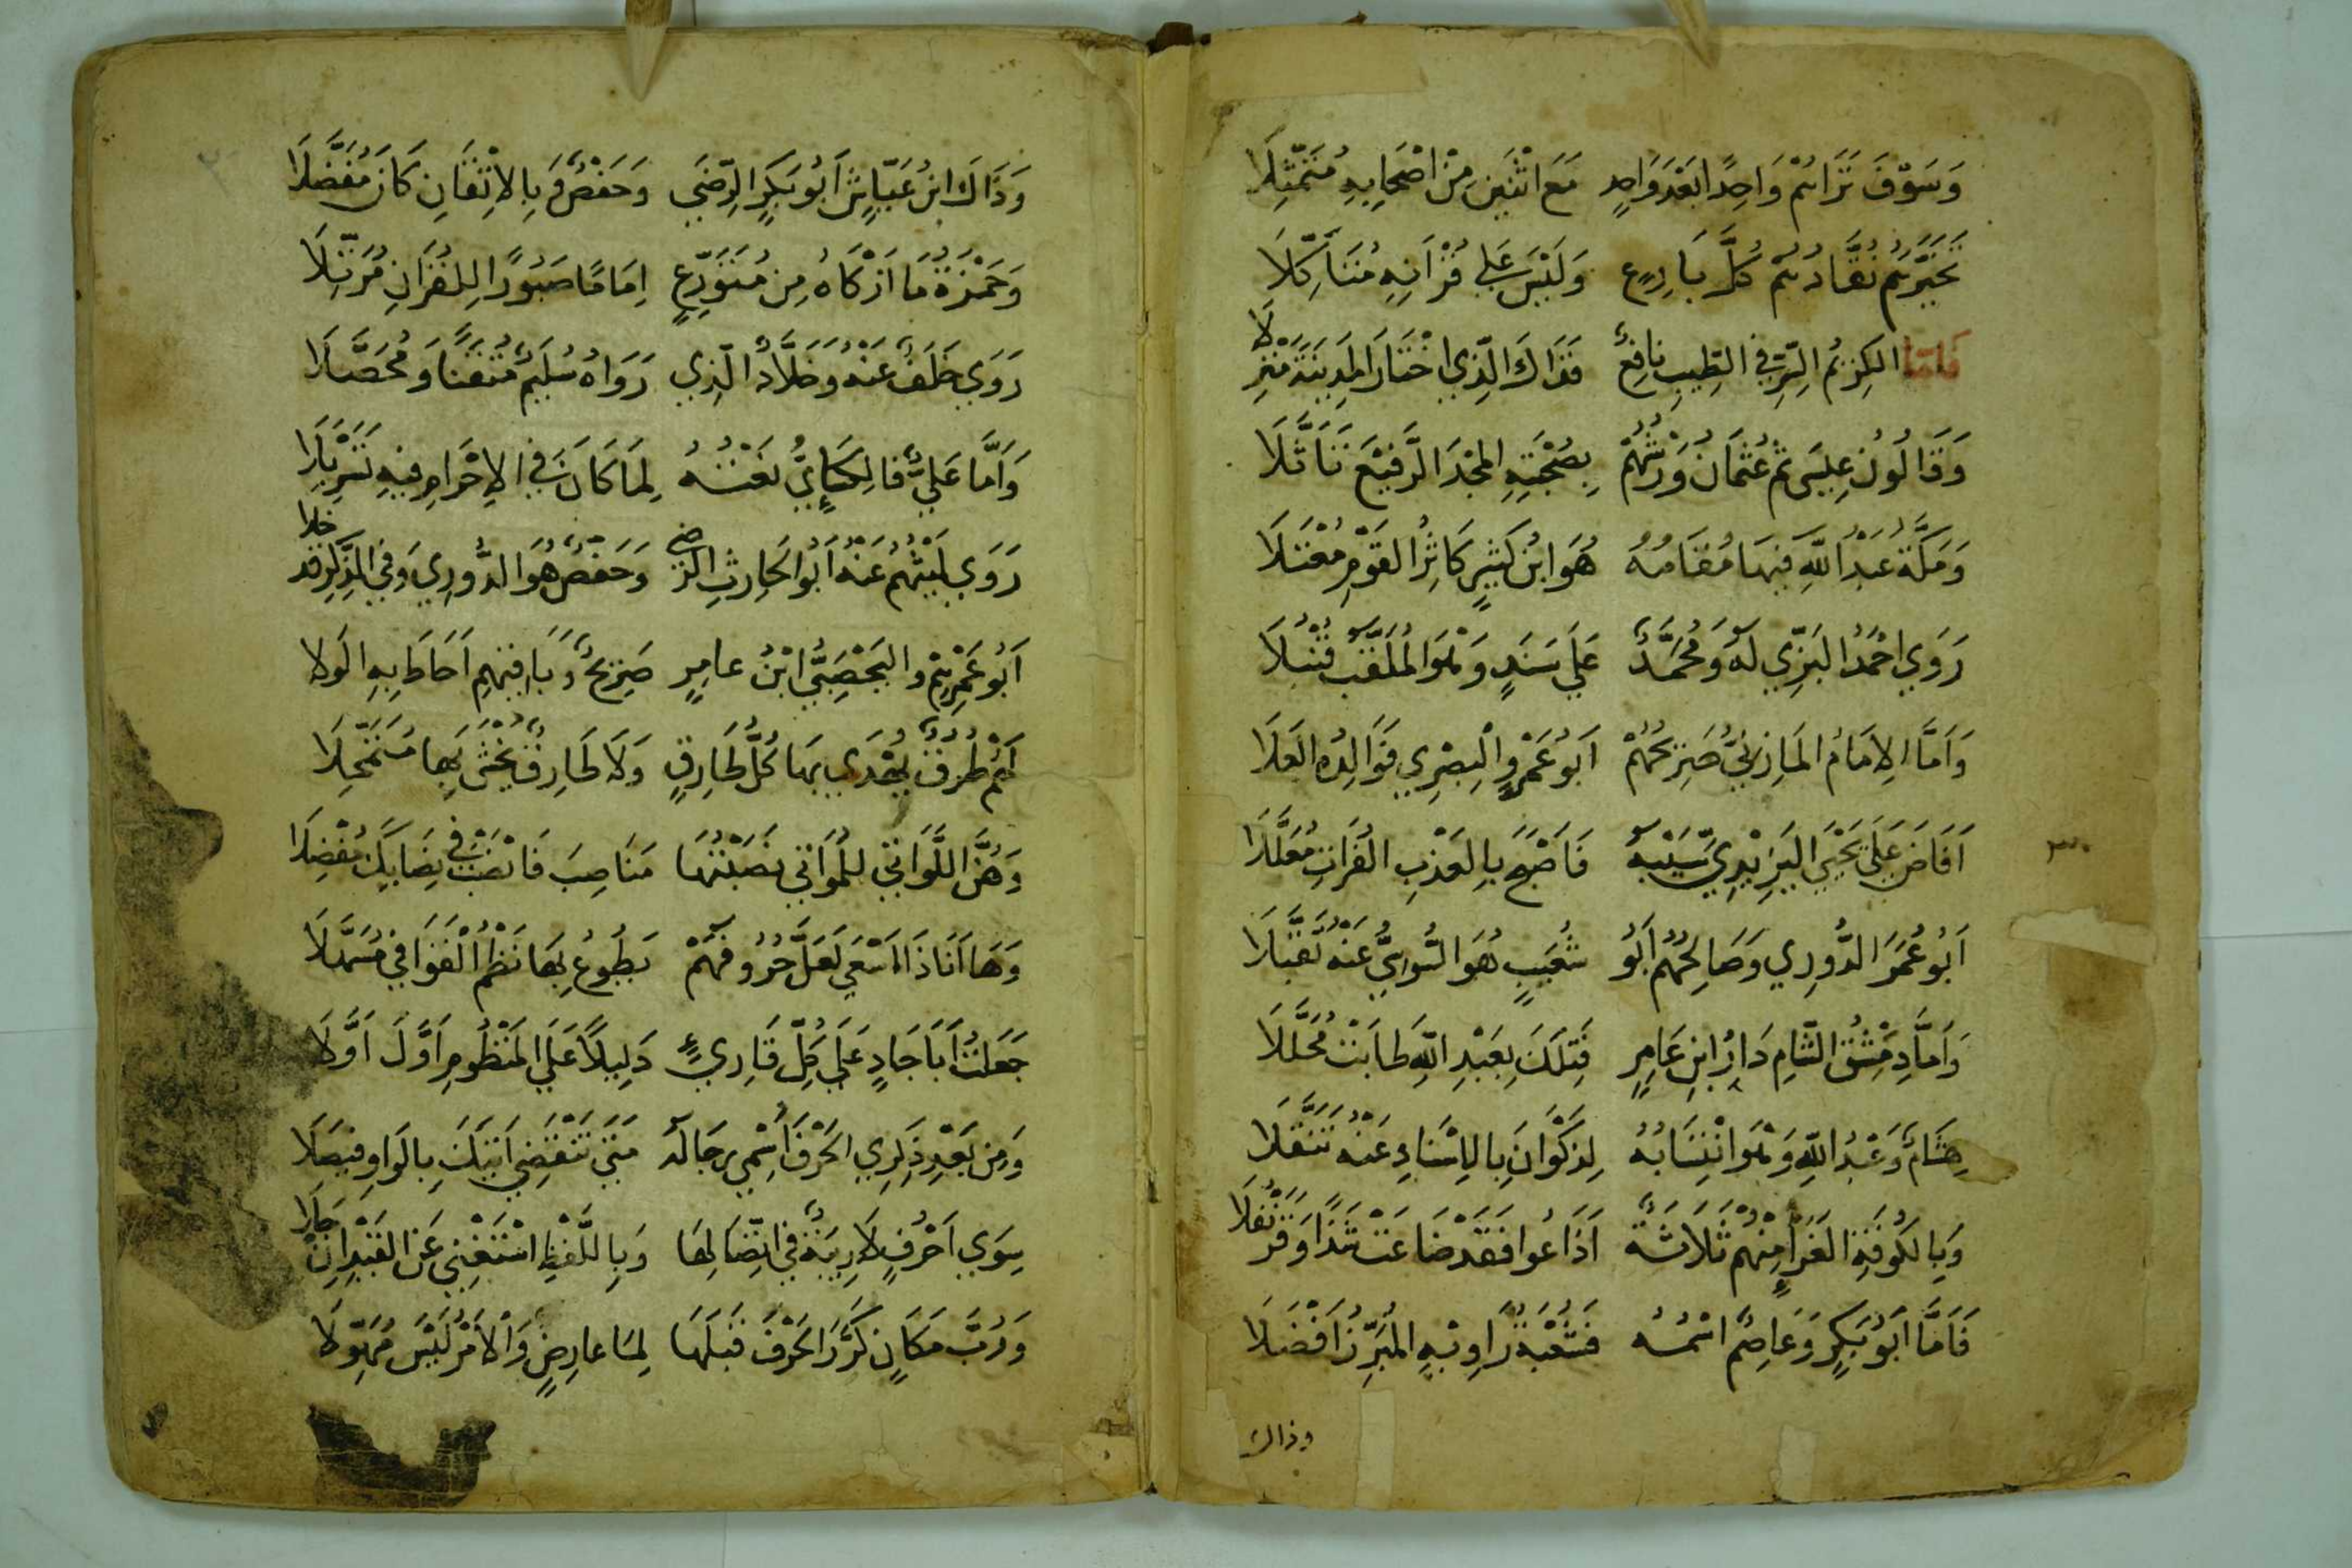 وَسَوْفَ تَرَاهُمْ وَاحِدًا بَعْدَ وَاحِدٍ مَعَ اثْنَيْنِ مِنْ اَصْحَابِهِ مُتَمَثِّلَا
تَخَيَّرَهُمْ نُقَّادُهُمْ كُلَّ بَارِعٍ وَلَيْسَ عَلَى قُرْآنِهِ مُتَأَكِّلَا
فَامَّا الكَرِيمُ السِّرِّ فِي الطِّيبِ نَافِعٌ فَذَاكَ الَّذِي اخْتَارَ المَدِينَةَ مَنْزِلَا
وَقَالُونُ عِيسَى ثُمَّ عُثْمَانُ وَرْشُهُمْ بِصُحْبَتِهِ المَجْدَ الرَّفِيعَ تَأَثَّلَا
وَمَكَّةُ عَبْدُ اللَّهِ فِيهَا مُقَامُهُ هُوَ ابْنُ كَثِيرٍ كَاثِرُ القَوْمِ مُعْتَلَا
رَوَى اَحْمَدُ البَزِّي لَهُ وَمُحَمَّدٌ عَلَى سَنَدٍ وَهْوَ المُلَقَّبُ قُنْبُلَا
وَاَمَّا الاِمَامُ المَازِنِيُّ صَرِيحُهُمْ اَبُو عَمْرٍو البَصْرِي فَوَالِدُهُ العَلَا
اَفَاضَ عَلَى يَحْيَى اليَزِيدِيِّ سَيْبَهُ فَاَصْبَحَ بِالعَذْبِ الفُرَاتِ مُعَلَّلَا
اَبُو عُمَرَ الدُّورِي وَصَالِحُهُمْ اَبُو شُعَيْبٍ هُوَ السُّوسِيُّ عَنْهُ تَقَبَّلَا
وَاَمَّا دِمَشْقُ الشَّامِ دَارُ ابْنِ عَامِرٍ فَتِلْكَ بِعَبْدِ اللَّهِ طَابَتْ مُحَلَّلَا
هِشَامٌ وَعَبْدُ اللَّهِ وَهْوَ انْتِسَابُهُ لِذَكْوَانَ بِالاِسْنَادِ عَنْهُ تَنَقَّلَا
وَبِالكُوفَةِ الغَرَّاءِ مِنْهُمْ ثَلَاثَةٌ اَذَاعُوا فَقَدْ ضَاعَتْ شَذًا وَقَرَنْفُلَا
فَاَمَّا اَبُو بَكْرٍ وَعَاصِمٌ اسْمُهُ فَشُعْبَةُ رَاوِيهِ المُبَرِّزُ اَفْضَلَا
وذاك
٣٠
وَذَاكَ ابْنُ عَيَّاشٍ اَبُو بَكْرٍ الرِّضَى وَحَفْصٌ وَبِالاِتْقَانِ كَانَ مُفَضَّلَا
وَحَمْزَةُ مَا اَزْكَاهُ مِنْ مُتَوَرِّعٍ اِمَامًا صَبُورًا لِلْقُرَانِ مُرَتِّلَا
رَوَى خَلَفٌ عَنْهُ وَخَلَّادٌ الَّذِي رَوَاهُ سُلَيْمٌ مُتْقَنًا وَمُحَصَّلَا
وَاَمَّا عَلِيٌّ فَالكِسَائِيُّ نَعْتُهُ لِمَا كَانَ فِي الاِحْرَامِ فِيهِ تَسَرْبَلَا
رَوَى لَيْثُهُمْ عَنْهُ اَبُو الحَارِثِ الرِّضَى وَحَفْصٌ هُوَ الدُّورِي وَفِي الذِّكْرِ قَدْ خَلَا
اَبُو عَمْرِهِمْ وَاليَحْصَبِيُّ ابْنُ عَامِرٍ صَرِيحٌ وَبَاقِيهِمْ اَحَاطَ بِهِ الوَلَا
لَهُمْ طُرُقٌ يُهْدَى بِهَا كُلُّ طَارِقٍ وَلَا طَارِقٌ يُخْشَى بِهَا مُتَمَحِّلَا
وَهُنَّ اللَّوَاتِي لِلْمُوَاتِي نَصَبْتُهَا مَنَاصِبَ فَانْصَبْ فِي نِصَابِكَ مُفْضِلَا
وَهَا اَنَا ذَا اَسْعَى لَعَلَّ حُرُوفَهُمْ يَطُوعُ بِهَا نَظْمُ الْقَوَافِي مُسَهِّلَا
جَعَلْتُ اَبَا جَادٍ عَلَى كُلِّ قَارِئٍ دَلِيلًا عَلَى المَنْظُومِ اَوَّلَ اَوَّلَا
وَمِنْ بَعْدِ ذِكْرِي الحَرْفَ اُسْمِي رِجَالَهُ مَتَى تَنْقَضِي آتِيكَ بِالوَاوِ فَيْصَلَا
سِوَى اَحْرُفٍ لَا رِيبَةٌ فِي اتِّصَالِهَا وَبِاللَّفْظِ اسْتَغْنِي عَنِ القَيْدِ اِنْ جَلَا
وَرُبَّ مَكَانٍ كَرَّرَ الحَرْفَ قَبْلَهَا لِمَا عَارِضٍ وَالاَمْرُ لَيْسَ مُهَوِّلَا